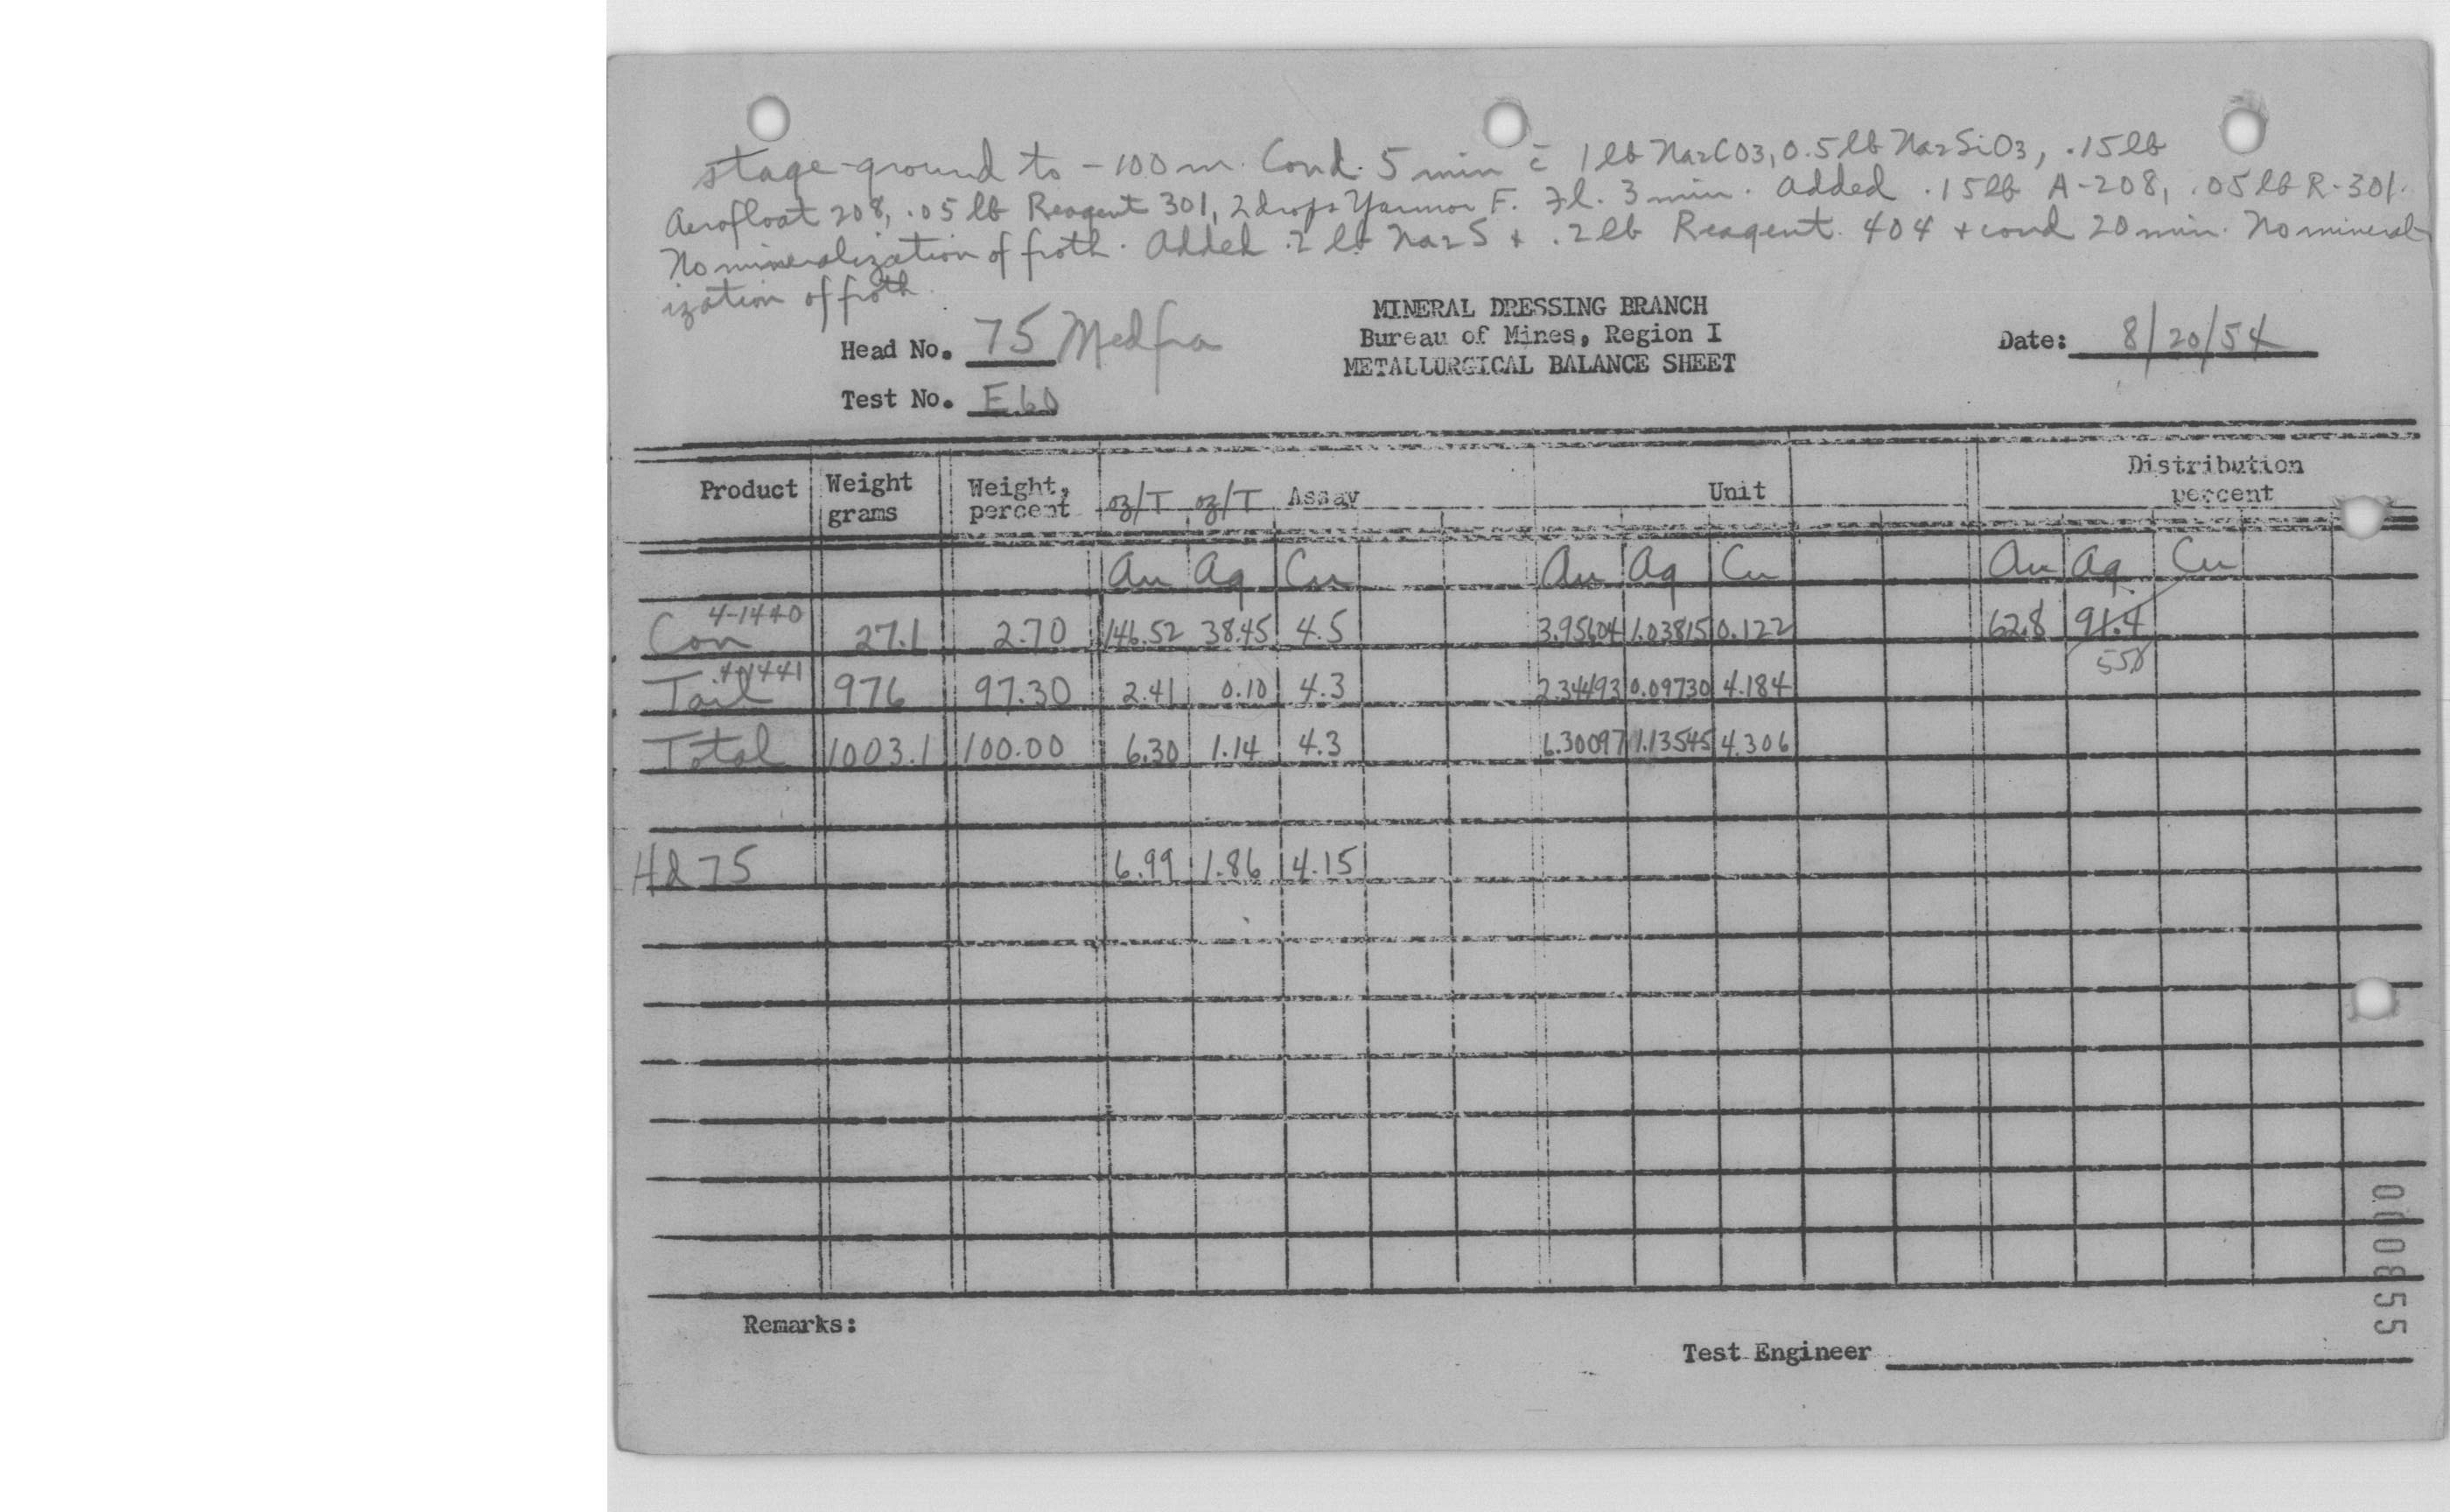 stage-ground to -100 m. Cond. 5 min c̄ 1 lb Na2CO3, 0.5 lb Na2SiO3, .15 lb
Aerofloat 208, .05 lb Reagent 301, 2 drops Yarmor F. Fl. 3 min. Added .15 lb A-208, .05 lb R-301.
No mineralization of froth. Added .2 lb Na2S + .2 lb Reagent 404 + cond 20 min. No mineral-
ization of froth.
MINERAL DRESSING BRANCH
Bureau of Mines, Region I
METALLURGICAL BALANCE SHEET
Head No. 75 Medfra
Date: 8/20/54
Test No. E60
Product Weight grams Weight, percent oz/T oz/T Assay Unit Distribution percent
Au Ag Cu Au Ag Cu Au Ag Cu
4-1440
Con 27.1 2.70 146.52 38.45 4.5 3.95604 1.03815 0.122 62.8 91.4
4-1441 55.8
Tail 976 97.30 2.41 0.10 4.3 2.34493 0.09730 4.184
Total 1003.1 100.00 6.30 1.14 4.3 6.30097 1.13545 4.306
Hd 75 6.99 1.86 4.15
Remarks:
Test Engineer
000855